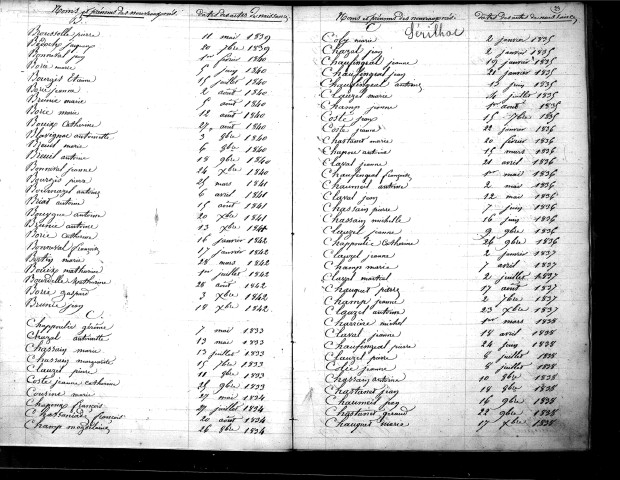 Noms et prénoms des nouveaux nés. dates des actes de naissance
Rousselle pierre 11 mai 1839
20 xbre 1839
Bonnetal jean 1er février 1840
Borie marie 5 juin 1840
Bourgès Etienne 15 juillet 1840
Borie jeanne 2 août 1840
Brunie marie 5 août 1840
Borie marie 12 août 1840
Bouix Catherine 27 août 1840
Blavignac antoinette 3 8bre 1840
Breuil marie 6 8bre 1840
Breuil antoine 18 9bre 1840
Bonneval jeanne 24 xbre 1840
Bourgès pierre 25 mai 1841
Bournazel antoine 6 avril 1841
Bréat antoine 15 août 1841
Bouygue antoine 20 xbre 1841
Brunie antoine 13 xbre 1841
Borie Catherine 16 janvier 1842
Bonneval françois 17 janvier 1842
Bertin marie 28 mars 1842
Bouix mathurine 1er juillet 1842
Bourdelle Catherine 28 août 1842
Borie gaspard 3 xbre 1842
Brunie jean 18 xbre 1842
C.
Chappoulie gérôme 7 mai 1833
Chazal antoinette 13 mai 1833
Chassain marie 13 juillet 1833
Chassain marguerite 15 7bre 1833
Clauzel pierre 21 8bre 1833
Coste jeanne Catherine 25 9bre 1833
Cousine marie 27 mai 1834
françois 27 juillet 1834
françois 20 août 1834
Champ magdelaine 26 8bre 1834
Noms et prénoms des nouveaux nés. dates des actes de naissance 25
C Sérilhac
Coly marie 2 janvier 1835
Chazal jean 5 janvier 1835
Chaufingeal jeanne 19 janvier 1835
Chaufingeal jean 21 janvier 1835
Chaufingeal antoine 13 juin 1835
Clauzel marie 14 juillet 1835
Champ jeanne 1er août 1835
Coste jean 15 7bre 1835
Coste jeanne 22 janvier 1836
Chastanet marie 20 février 1836
antoine 15 mars 1836
Claval jeanne 21 avril 1836
Chaufingeal françoise 1er mai 1836
Chaumeil antoine 2 mai 1836
Claval jean 12 mai 1836
Chassain pierre 7 juin 1836
Chassain michelle 16 juin 1836
Clauzel jeanne 9 9bre 1836
Chappoulie Catherine 26 9bre 1836
Clauzel jeanne 2 janvier 1837
Champ marie 7 avril 1837
Clauzel martial 2 juillet 1837
Chauquet pierre 17 août 1837
Champ jeanne 2 7bre 1837
Clauzel antoine 23 xbre 1837
Charrière michel 1er mars 1838
Claval jeanne 18 avril 1838
Chaufingeal pierre 24 juin 1838
Clauzel pierre 8 juillet 1838
Colie jeanne 8 juillet 1838
Chassain antoine 10 8bre 1838
Chastanet jean 18 8bre 1838
Chaumeil jean 16 9bre 1838
Chastanet géraud 22 9bre 1838
Chauquet marie 17 xbre 1838